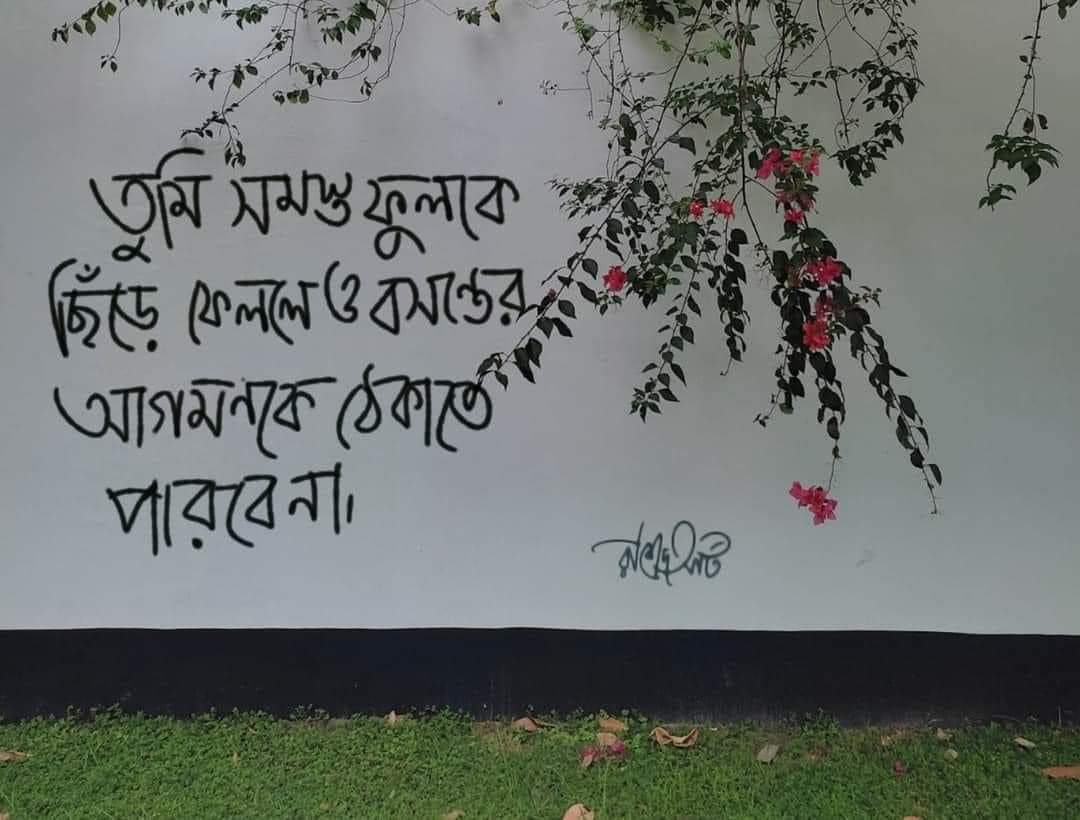 তুমি সমস্ত ফুলকে
ছিঁড়ে ফেললেও বসন্তের
আগমনকে ঠেকাতে
পারবে না।